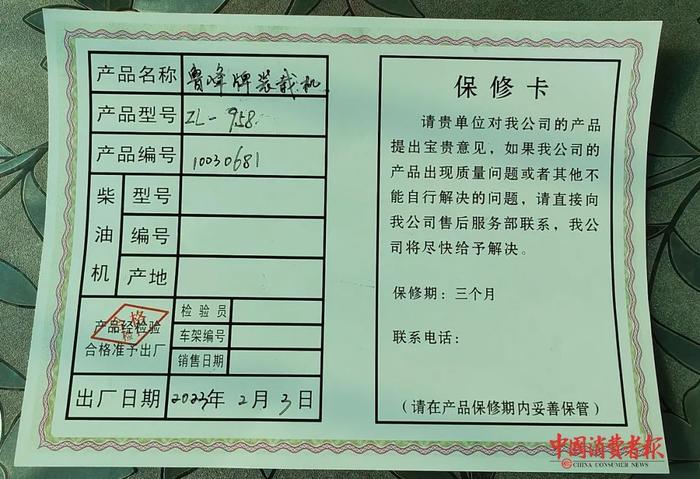 产品名称 鲁峰牌装载机
产品型号 ZL-958
产品编号 10030681
柴油机
型号
编号
产地
产品经检验
合格准予出厂
检验员
车架编号
销售日期
出厂日期 2023年2月3日
保修卡
请贵单位对我公司的产品
提出宝贵意见,如果我公司的
产品出现质量问题或者其他不
能自行解决的问题,请直接向
我公司售后服务部联系,我公
司将尽快给予解决。
保修期:三个月
联系电话:
(请在产品保修期内妥善保管)
中国消费者报
CHINA CONSUMER NEWS